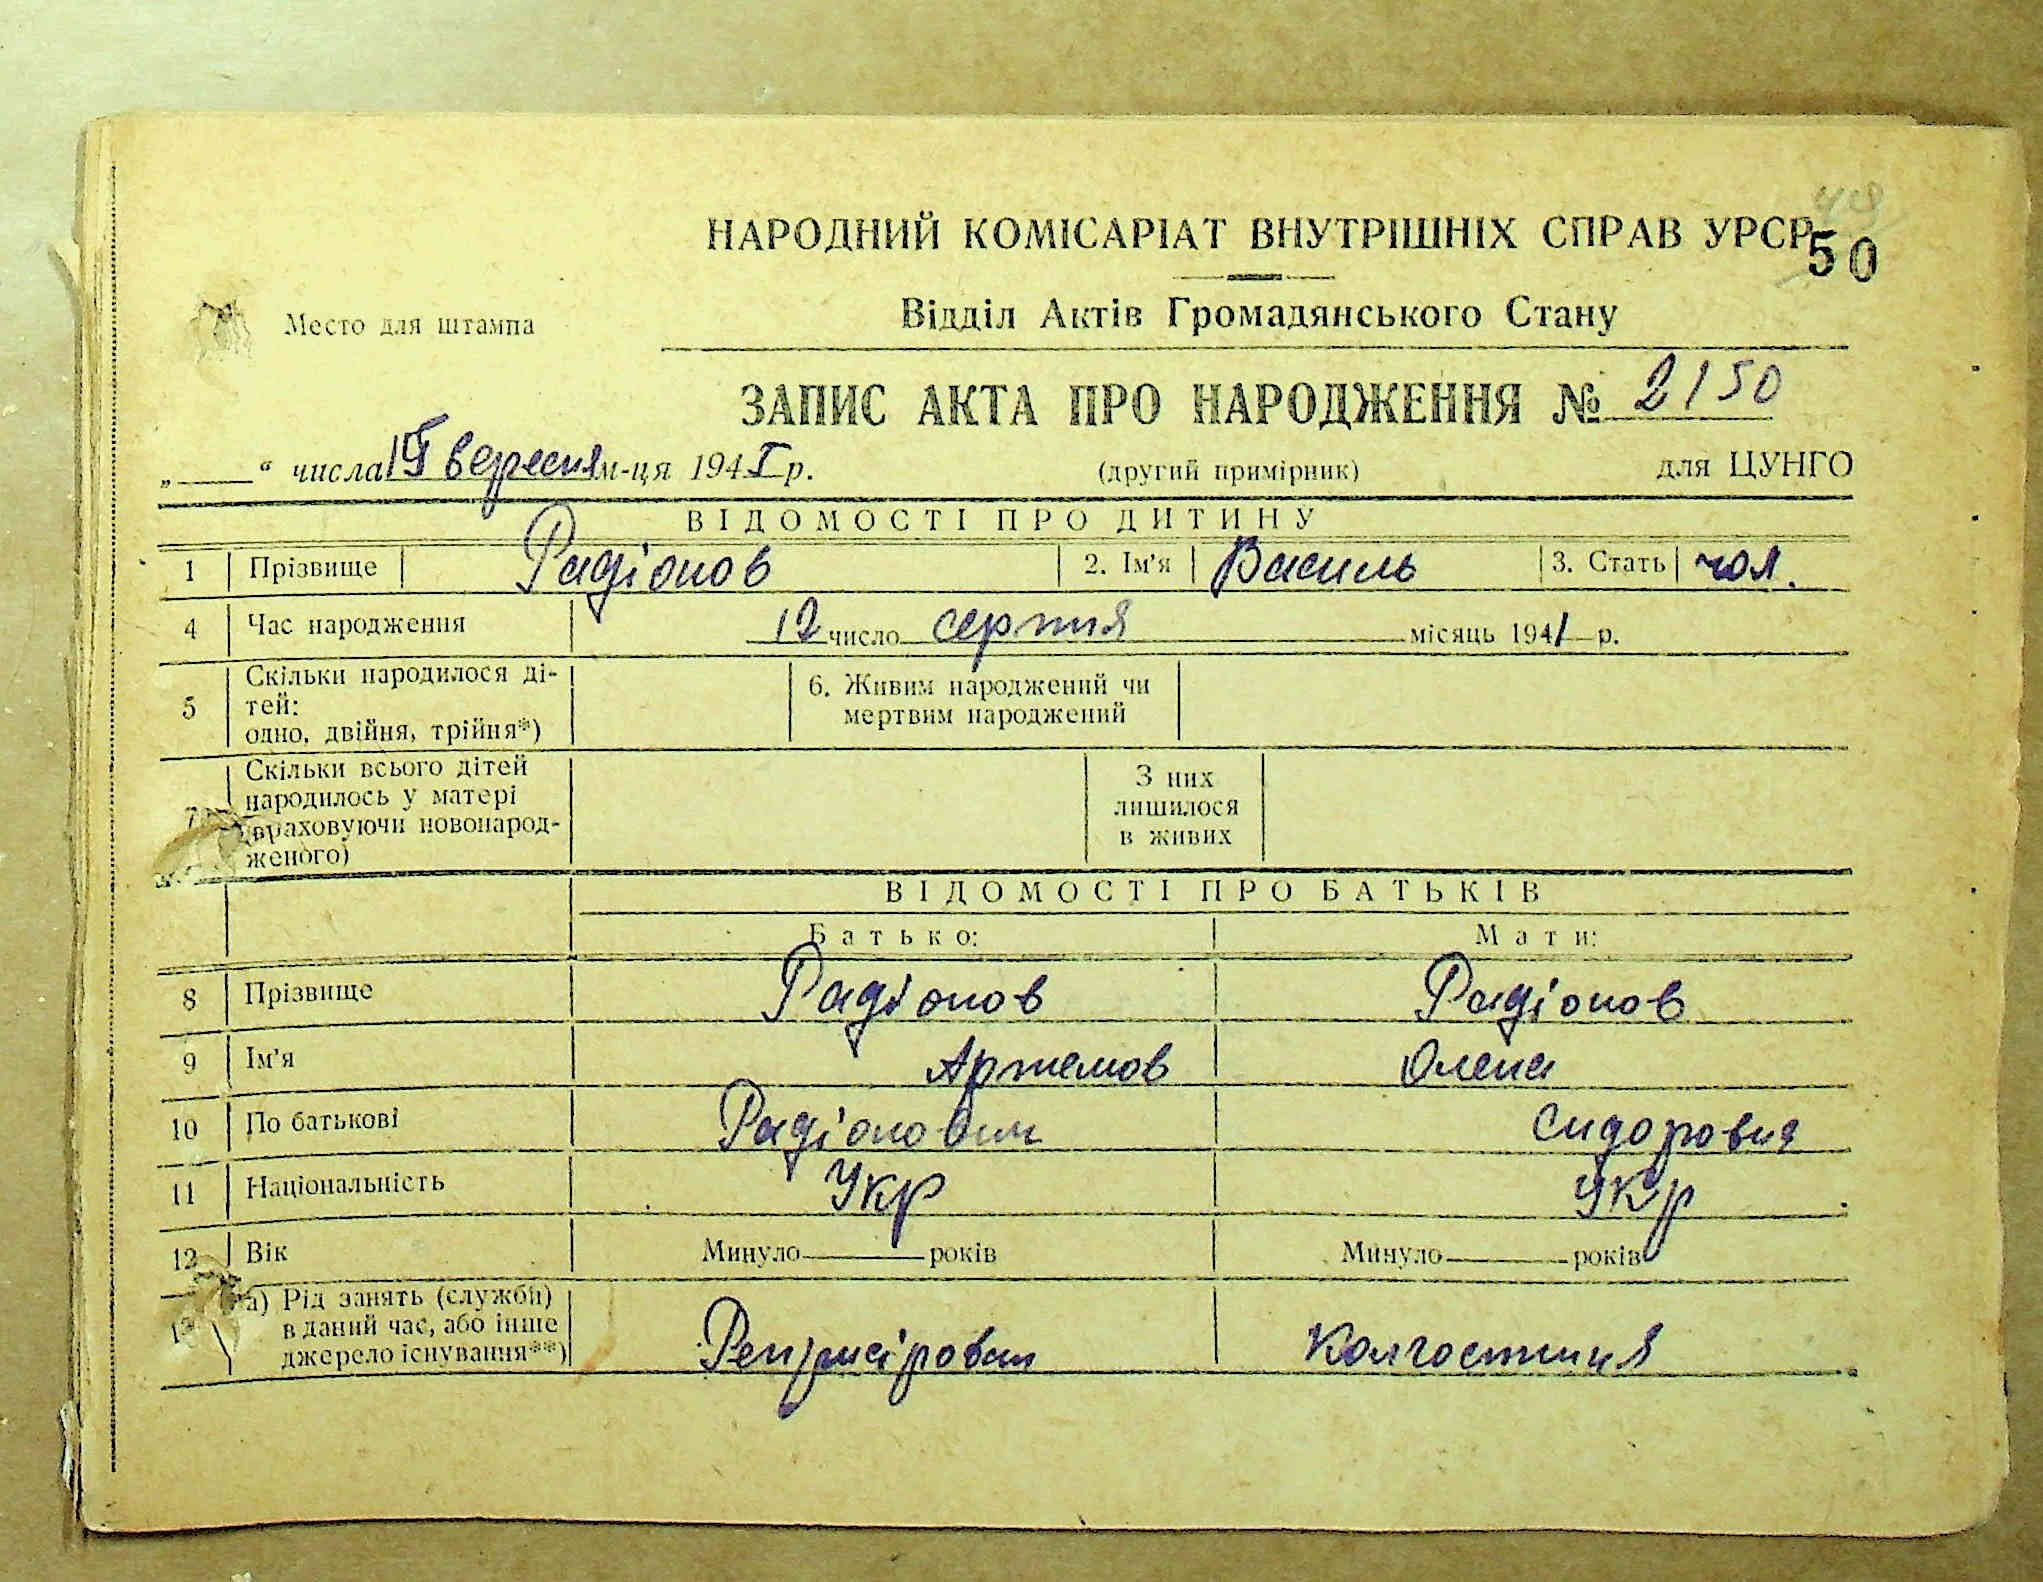 НАРОДНИЙ КОМІСАРІАТ ВНУТРІШНІХ СПРАВ УРСР
50
Место для штампа
Відділ Актів Громадянського Стану
ЗАПИС АКТА ПРО НАРОДЖЕННЯ № 2150
„ “ числа вересня м-ця 194І р. (другий примірник) для ЦУНГО
ВІДОМОСТІ ПРО ДИТИНУ
1 Прізвище Радіонов 2. Ім'я Василь 3. Стать чол.
4 Час народження 12 число серпня місяць 1941 р.
5 Скільки народилося ді-
тей:
одно, двійня, трійня*)
6. Живим народжений чи
мертвим народжений
7 Скільки всього дітей
народилось у матері
(враховуючи новонарод-
женого)
З них
лишилося
в живих
ВІДОМОСТІ ПРО БАТЬКІВ
Батько: Мати:
8 Прізвище Радіонов Радіонов
9 Ім'я Артемов Олена
10 По батькові Радіонович Сидоровна
11 Національність Укр Укр
12 Вік Минуло років Минуло років
13 а) Рід занять (служби)
в даний час, або інше
джерело існування**)
Колгоспниця